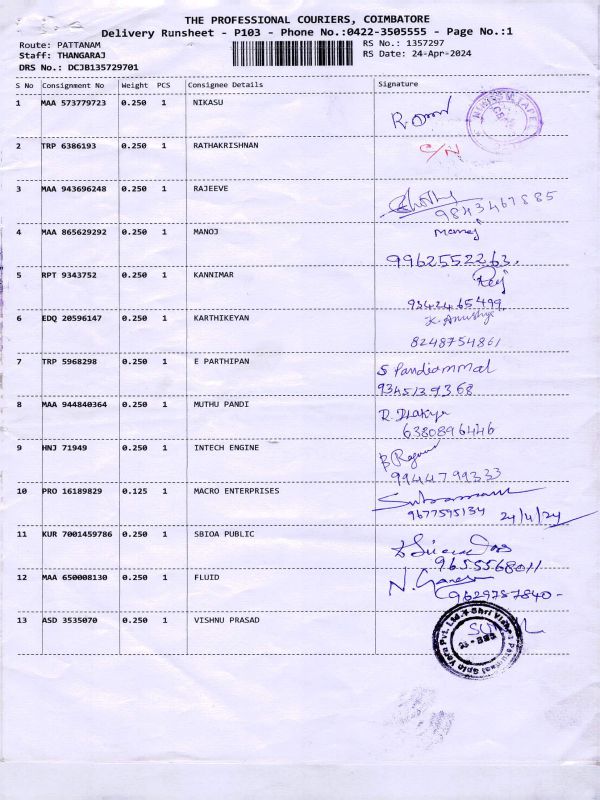 THE PROFESSIONAL COURIERS, COIMBATORE
Delivery Runsheet - P103 - Phone No.:0422-3505555 - Page No.:1
Route: PATTANAM
RS No.: 1357297
Staff: THANGARAJ
RS Date: 24-Apr-2024
DRS No.: DCJB135729701
S No Consignment No Weight PCS Consignee Details Signature
1 MAA 573779723 0.250 1 NIKASU
2 TRP 6386193 0.250 1 RATHAKRISHNAN C/N
3 MAA 943696248 0.250 1 RAJEEVE
9843467885
4 MAA 865629292 0.250 1 MANOJ Manoj
9962552263.
5 RPT 9343752 0.250 1 KANNIMAR
9342465499
6 EDQ 20596147 0.250 1 KARTHIKEYAN
8248754861
7 TRP 5968298 0.250 1 E PARTHIPAN S Pandiammal
9345139368
8 MAA 944840364 0.250 1 MUTHU PANDI
6380896446
9 HNJ 71949 0.250 1 INTECH ENGINE
9944799333
10 PRO 16189829 0.125 1 MACRO ENTERPRISES
9677595134 24/4/24
11 KUR 7001459786 0.250 1 SBIOA PUBLIC
9655568011
12 MAA 650008130 0.250 1 FLUID
9629787840-
13 ASD 3535070 0.250 1 VISHNU PRASAD